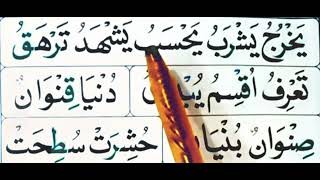 يَخْرُجُ يَشْرَبُ يَحْسَبُ يَشْهَدُ تَرْهَقُ
تَعْرِفُ اُقْسِمُ دُنْيَا قِنْوَانٌ
صِنْوَانٌ حُشِرَتْ سُطِحَتْ